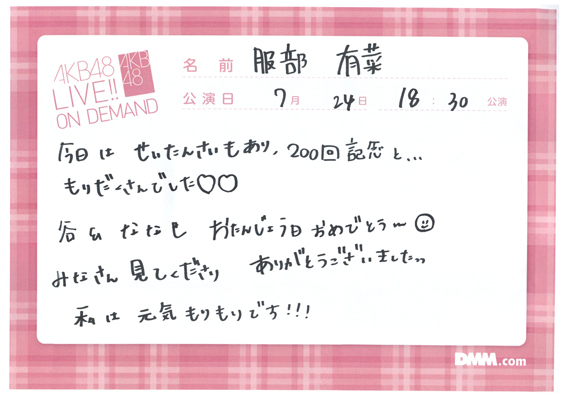 AKB48
LIVE!!
ON DEMAND
AKB
48
名前 服部 有菜
公演日 7月 24日 18:30 公演
今日は せいたんさいもあり、200回記念と...
もりだくさんでした♡♡
谷口 ななせ おたんじょう日 おめでとう〜☺
みなさん 見てくださり ありがとうございましたっ
私は 元気もりもりです!!!
DMM.com